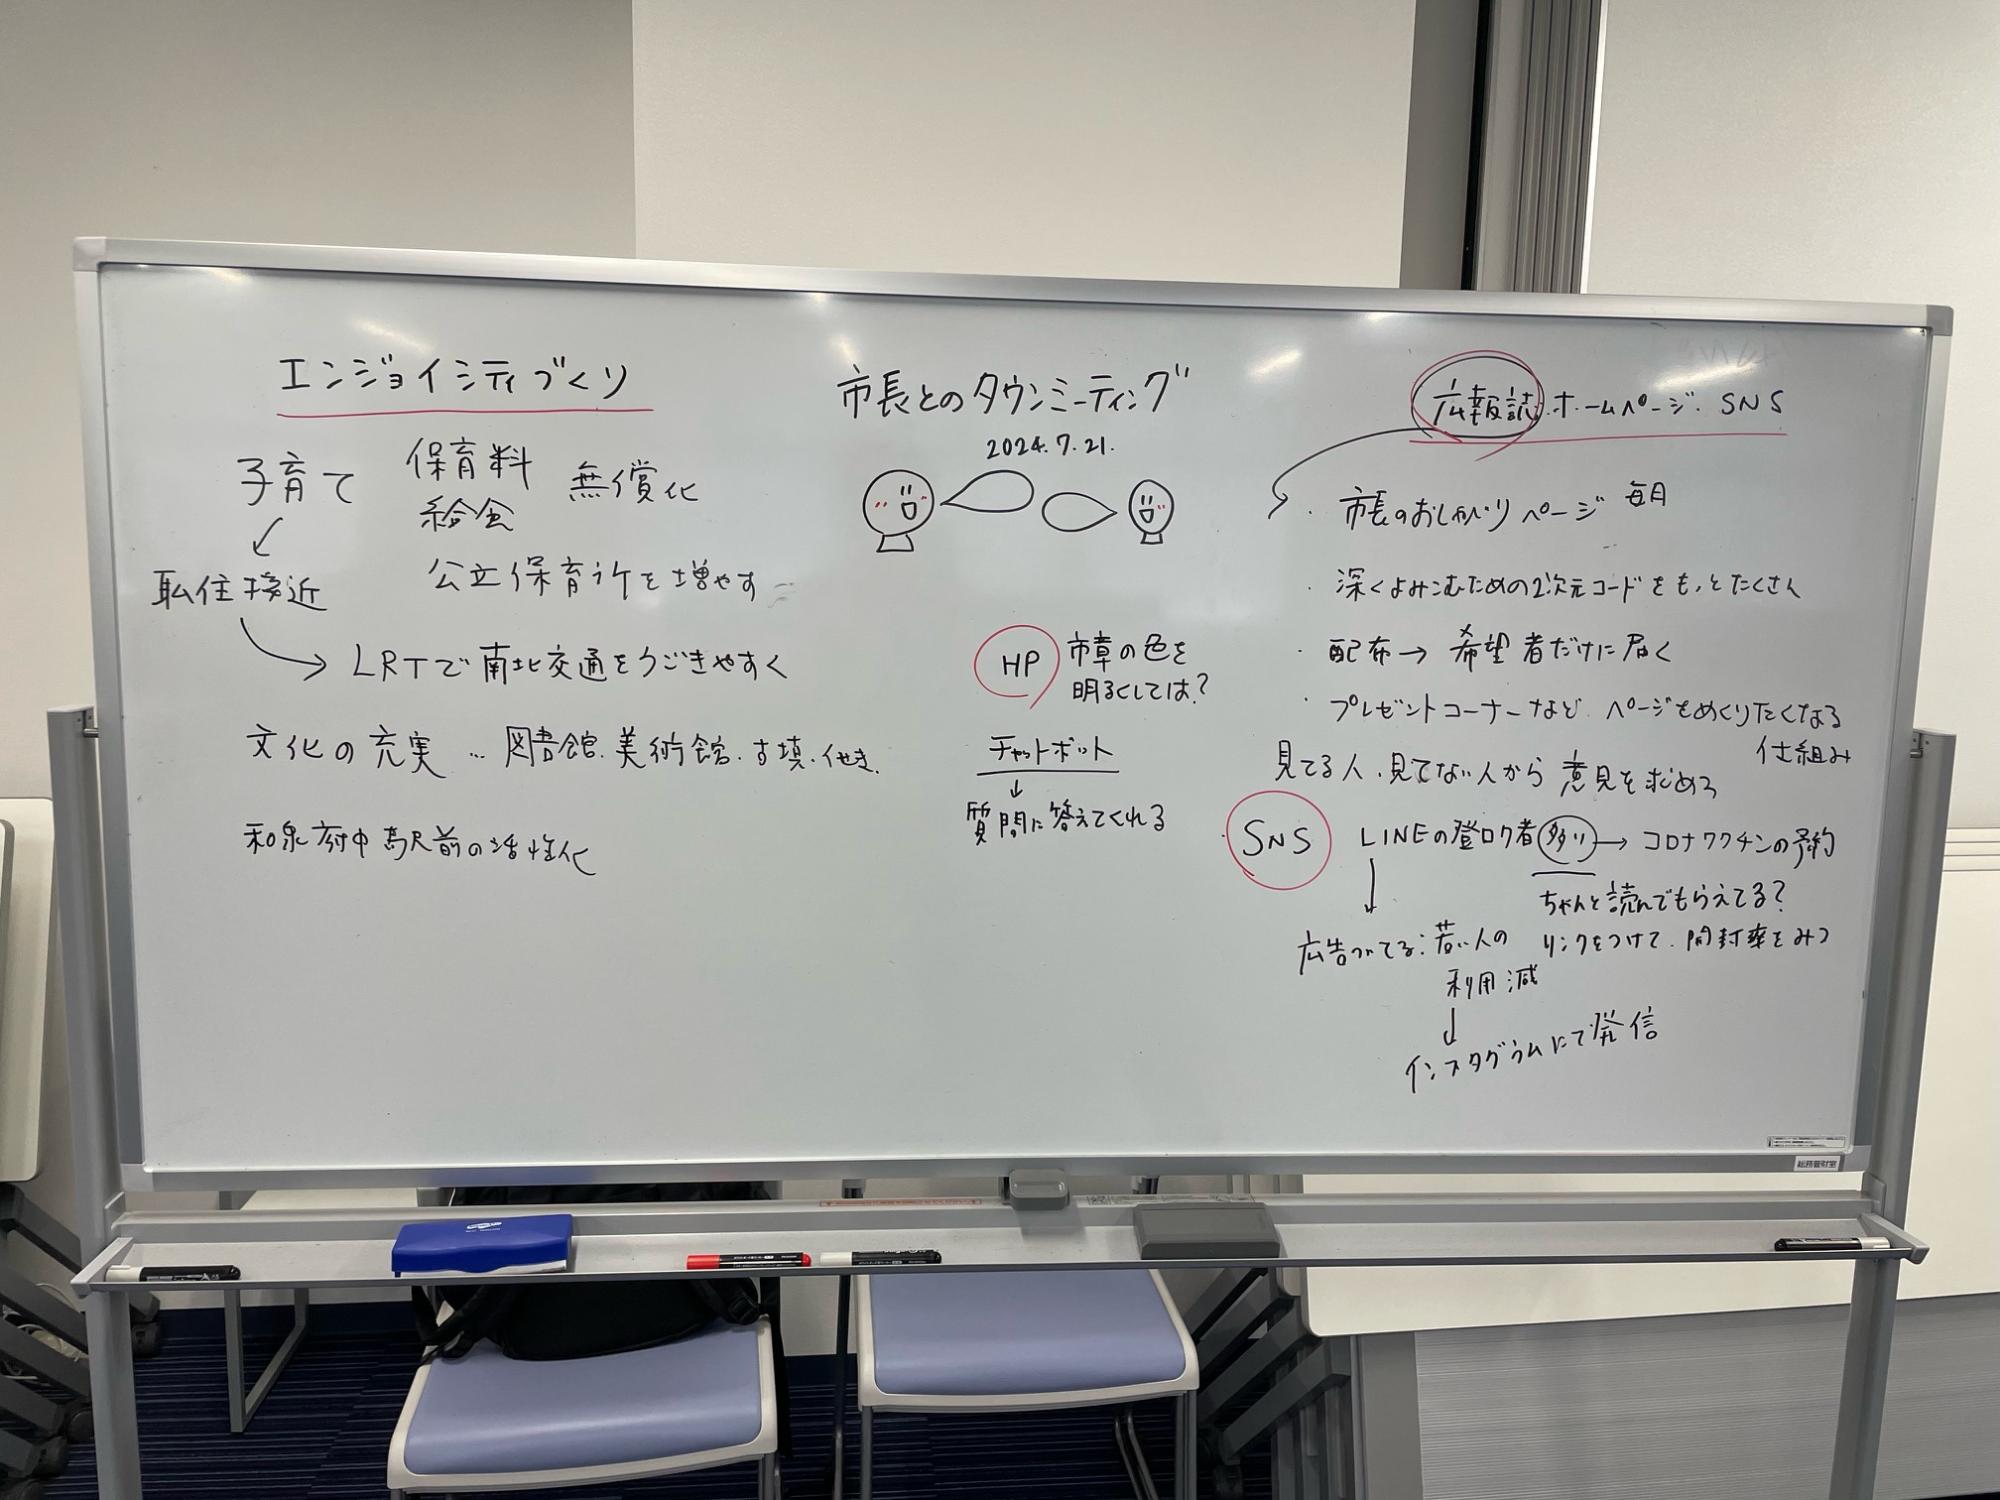 エンジョイシティづくり
子育て 保育料 無償化
給食
公立保育所を増やす
職住接近
LRTで南北交通をうごきやすく
文化の充実 … 図書館.美術館.古墳.
和泉府中駅前の活性化
市長とのタウンミーティング
2024.7.21.
HP 市章の色を
明るくしては?
チャットボット
↓
質問に答えてくれる
広報誌.ホームページ.SNS
・市長のおしかりページ 毎月
・深くよみこむための2次元コードをもっとたくさん
・配布→希望者だけに届く
・プレゼントコーナーなど ページをめくりたくなる
仕組み
見てる人.見てない人から意見を求めろ
SNS LINEの登ロク者多い→コロナワクチンの予約
ちゃんと読んでもらえてる?
リンクをつけて.開封率をみつ
広告がでる:若い人の
利用減
↓
インスタグラムにて発信